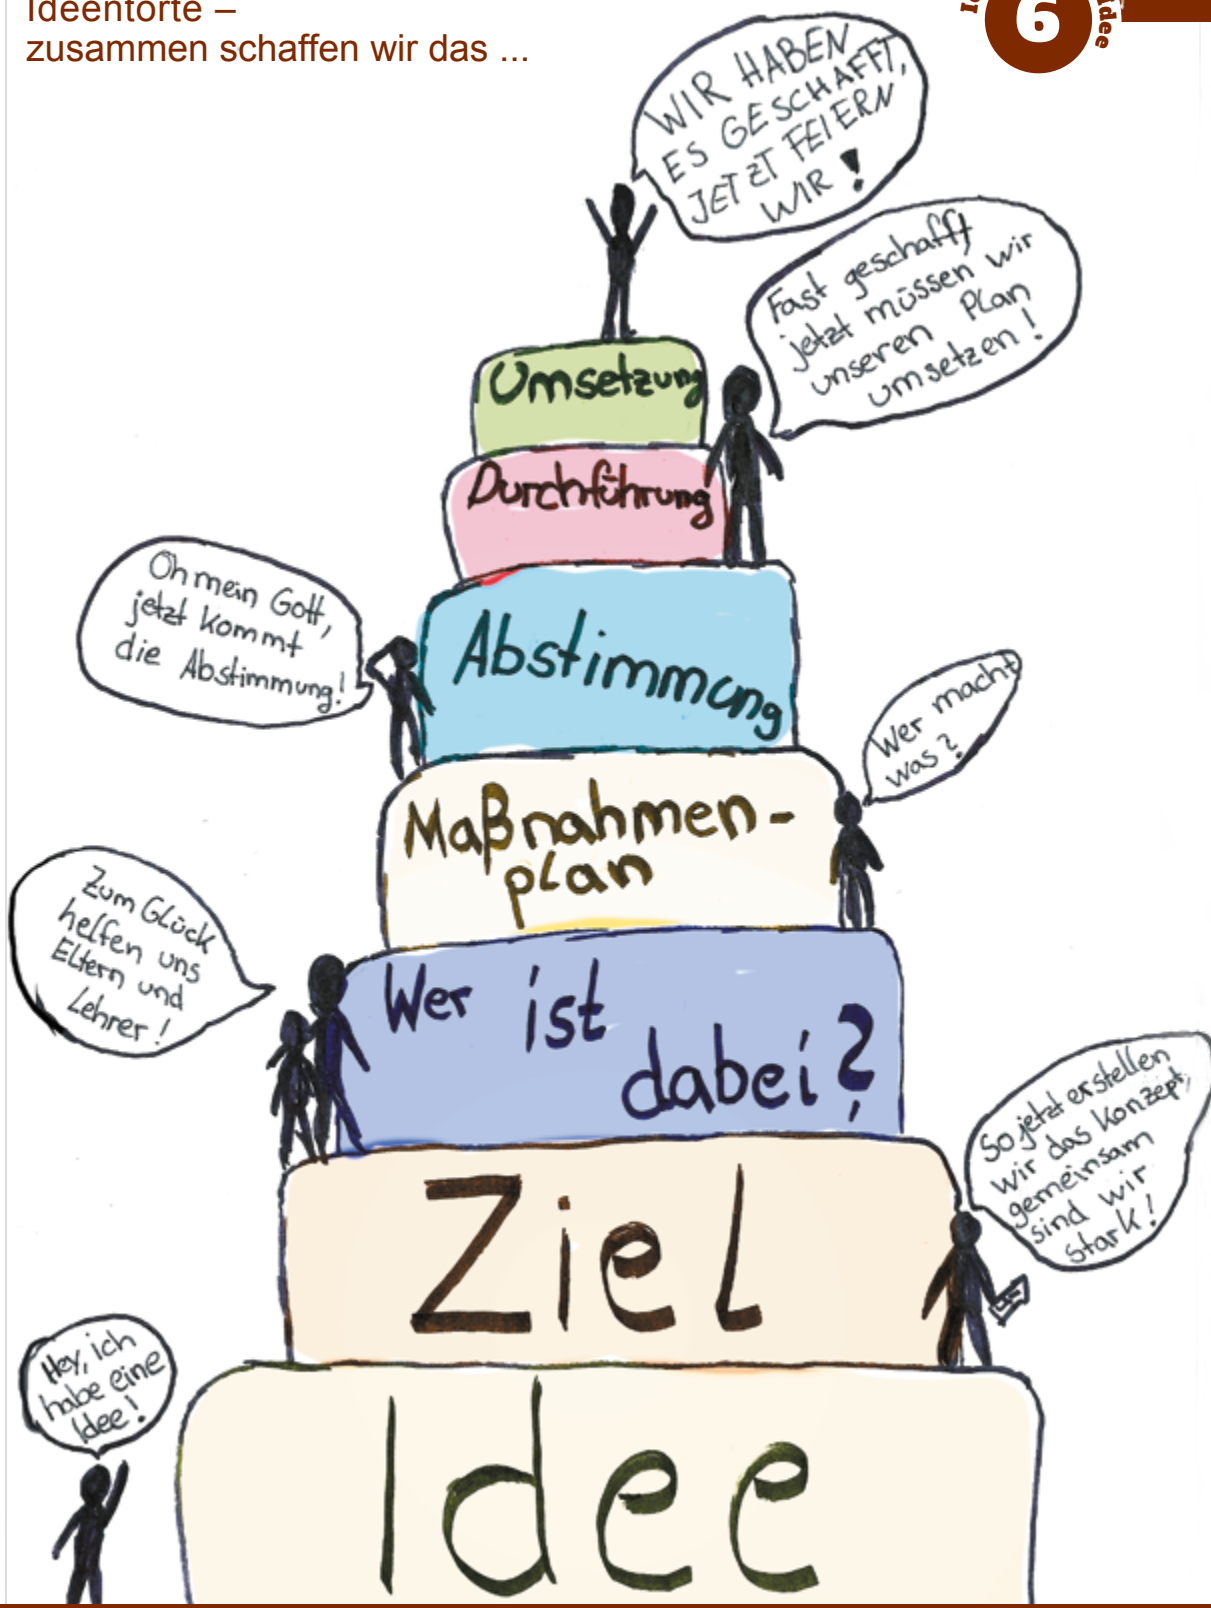 Ideentorte –
zusammen schaffen wir das ...
6
Idee
WIR HABEN
ES GESCHAFFT,
JETZT FEIERN
WIR !
Fast geschafft
jetzt müssen wir
unseren Plan
umsetzen!
Umsetzung
Durchführung
Oh mein Gott,
jetzt kommt
die Abstimmung!
Abstimmung
Wer macht
was?
Maßnahmen-
plan
Zum Glück
helfen uns
Eltern und
Lehrer!
Wer ist
dabei?
So jetzt erstellen
wir das Konzept,
gemeinsam
sind wir
stark!
Ziel
Hey, ich
habe eine
Idee!
Idee